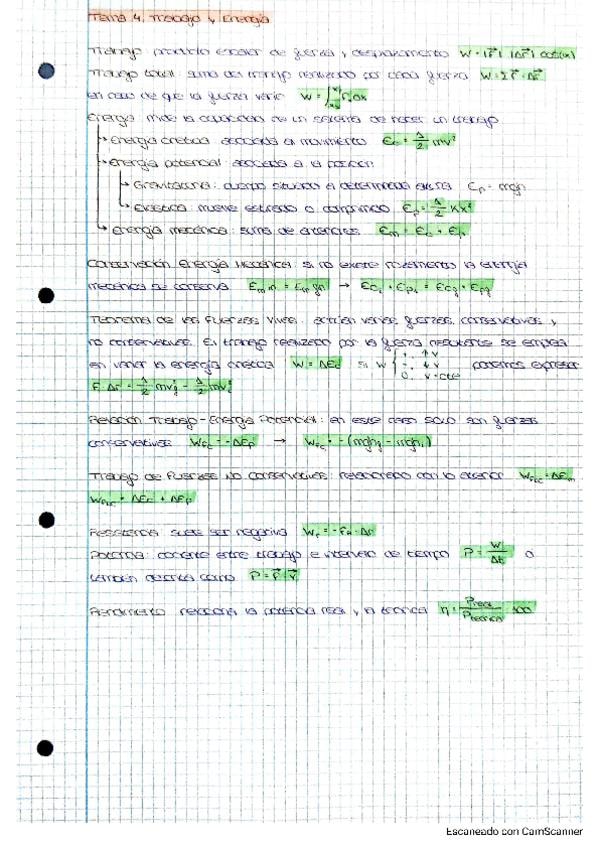 Tema 4. Trabajo y Energía
Trabajo: producto escalar de fuerza y desplazamiento W = |F⃗| |Δr⃗| cos(α)
Trabajo total: suma del trabajo realizado por cada fuerza W = Σ F⃗ · Δr⃗
en caso de que la fuerza varíe W = ∫ Fx dx
Energía: mide la capacidad de un sistema de hacer un trabajo
Energía cinética: asociada al movimiento Ec = 1/2 mv²
Energía potencial: asociada a la posición
Gravitatoria: cuerpo situado a determinada altura Ep = mgh
Elástica: muelle estirado o comprimido Ep = 1/2 Kx²
Energía mecánica: suma de anteriores Em = Ec + Ep
Conservación Energía Mecánica: si no existe rozamiento la energía
mecánica se conserva Em in = Em fin → Eci + Epi = Ecf + Epf
Teorema de las Fuerzas Vivas: actúan varias fuerzas, conservativas y
no conservativas. El trabajo realizado por la fuerza resultante se emplea
en variar la energía cinética W = ΔEc si W { + ↑v - ↓v 0 v=cte podemos expresar
F · Δr = 1/2 mvf² - 1/2 mvi²
Relación Trabajo-Energía Potencial: en este caso solo son fuerzas
conservativas WFC = -ΔEp → WFC = -(mghf - mghi)
Trabajo de Fuerzas No Conservativas: relacionado con lo anterior WFNC = ΔEm
WFNC = ΔEc + ΔEp
suele ser negativa Wr = -Fr · Δr
Potencia: cociente entre trabajo e intervalo de tiempo P = W/Δt o
también descrita como P = F⃗ · v⃗
Rendimiento: relaciona la potencia real y la teórica η = Preal/Pteórica · 100
Escaneado con CamScanner